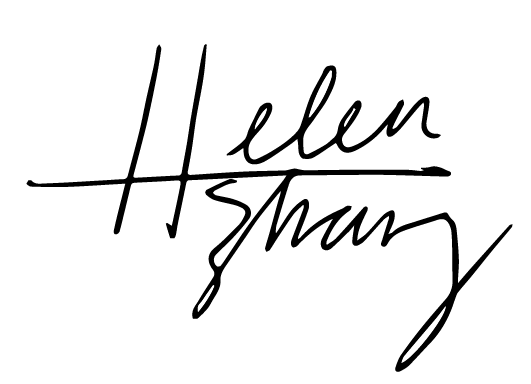 Helen
Zhang